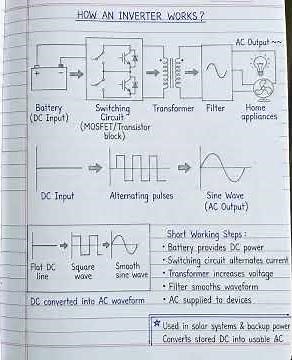 HOW AN INVERTER WORKS?
AC Output
Battery
(DC Input)
Switching
Circuit
(MOSFET/Transistor
block)
Transformer
Filter
Home
appliances
DC Input
Alternating pulses
Sine Wave
(AC Output)
Flat DC
line
Square
wave
Smooth
sine wave
DC converted into AC waveform
Short Working Steps:
• Battery provides DC power
• Switching circuit alternates current
• Transformer increases voltage
• Filter smooths waveform
• AC supplied to devices
☆ Used in solar systems & backup power
Converts stored DC into usable AC